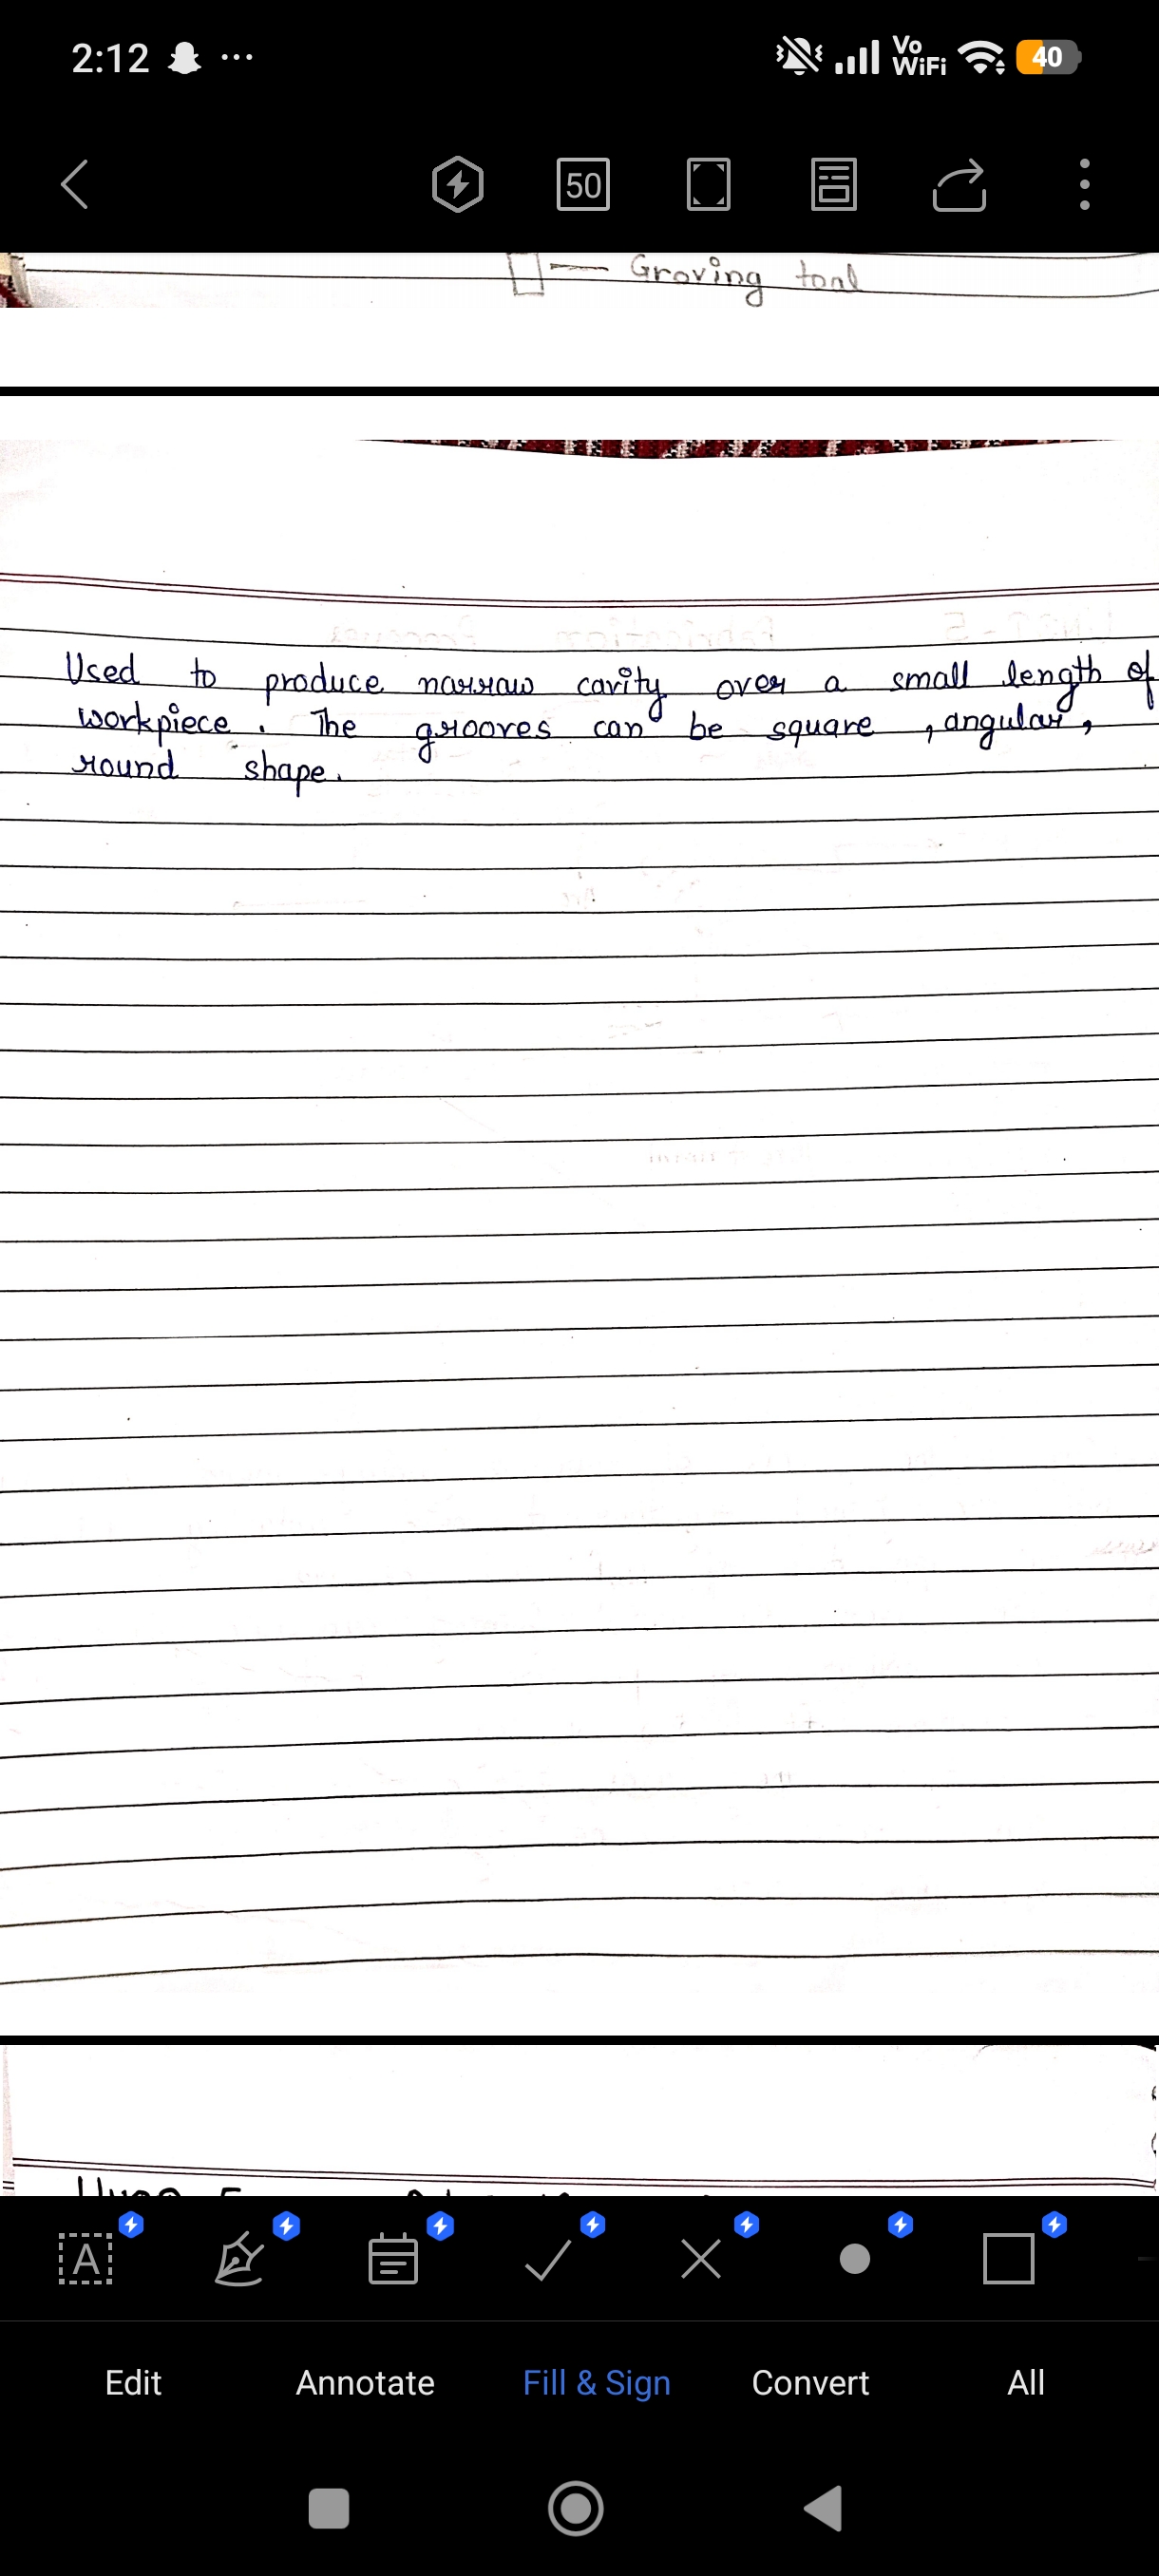 2:12
Vo
WiFi
40
50
Groving tool
Used to produce narrow cavity over a small length of
workpiece. The grooves can be square, angular,
round shape.
A
Edit
Annotate
Fill & Sign
Convert
All